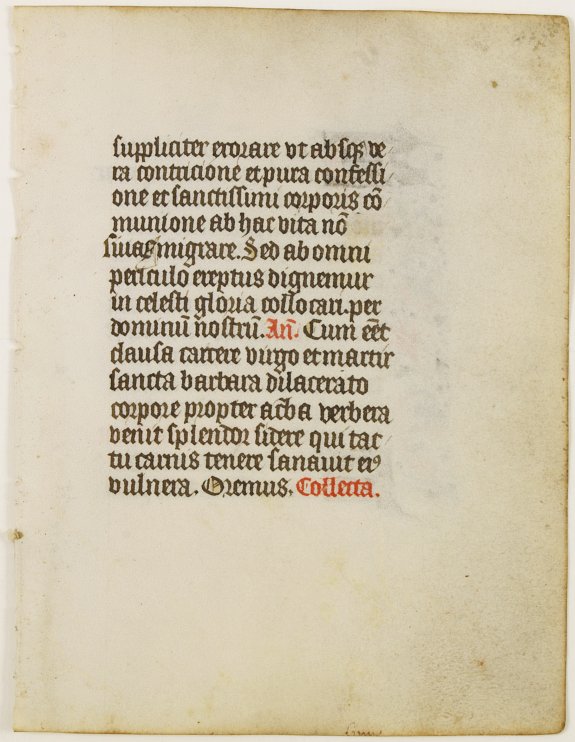 suppliciter exorare vt absq; ve
ra contricione et pura confessi
one et sanctissimi corporis cō
munione ab hac vita nō
migrare. Sed ab omni
periculo ereptus dignemur
in celesti gloria collocari. per
dominū nostrū. Añ. Cum eēt
clausa carcere virgo et martir
sancta barbara dilacerato
corpore propter acba verbera
venit splendor sidere qui tac
tu carnis tenere sanauit eiꝰ
vulnera. Oremus. Collecta.